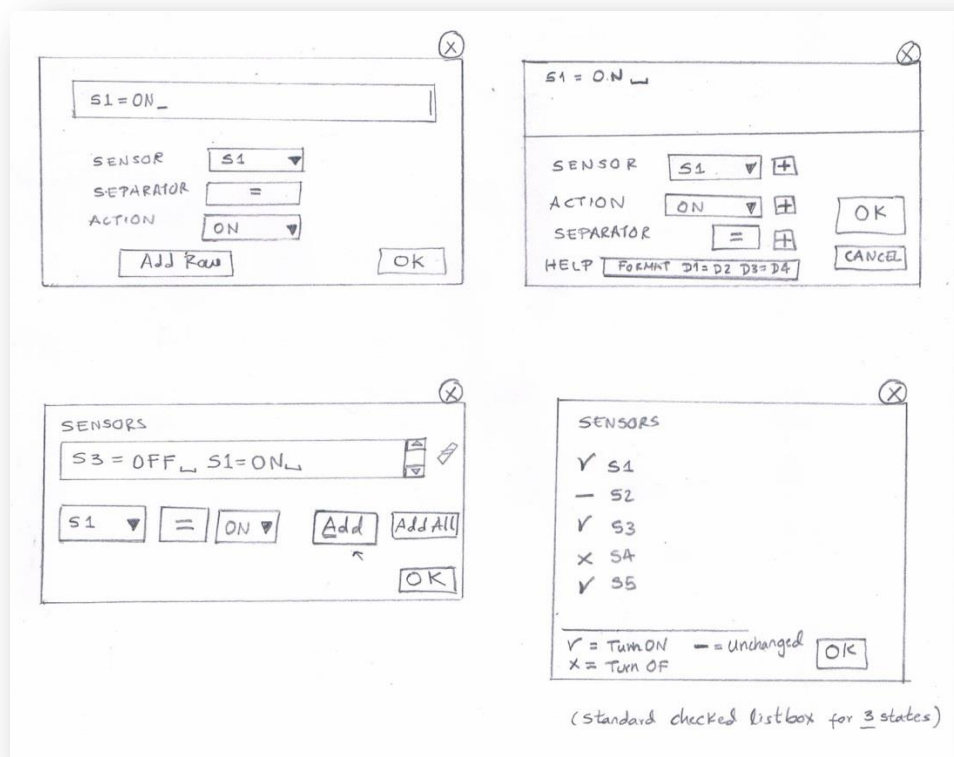 X
S1 = ON_
SENSOR S1
SEPARATOR =
ACTION ON
Add Row OK
X
S1 = ON
SENSOR S1 +
ACTION ON +
SEPARATOR = +
OK
CANCEL
HELP FORMAT D1=D2 D3=D4
X
SENSORS
S3 = OFF S1=ON
S1 = ON Add Add All
OK
X
SENSORS
✓ S1
– S2
✓ S3
× S4
✓ S5
✓ = Turn ON – = Unchanged
× = Turn OF
OK
(Standard checked listbox for 3 states)